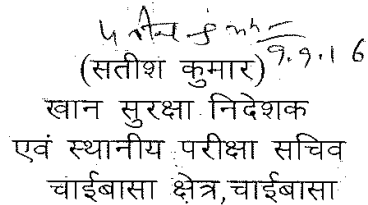 9.9.16
(सतीश कुमार)
खान सुरक्षा निदेशक
एवं स्थानीय परीक्षा सचिव
चाईबासा क्षेत्र,चाईबासा